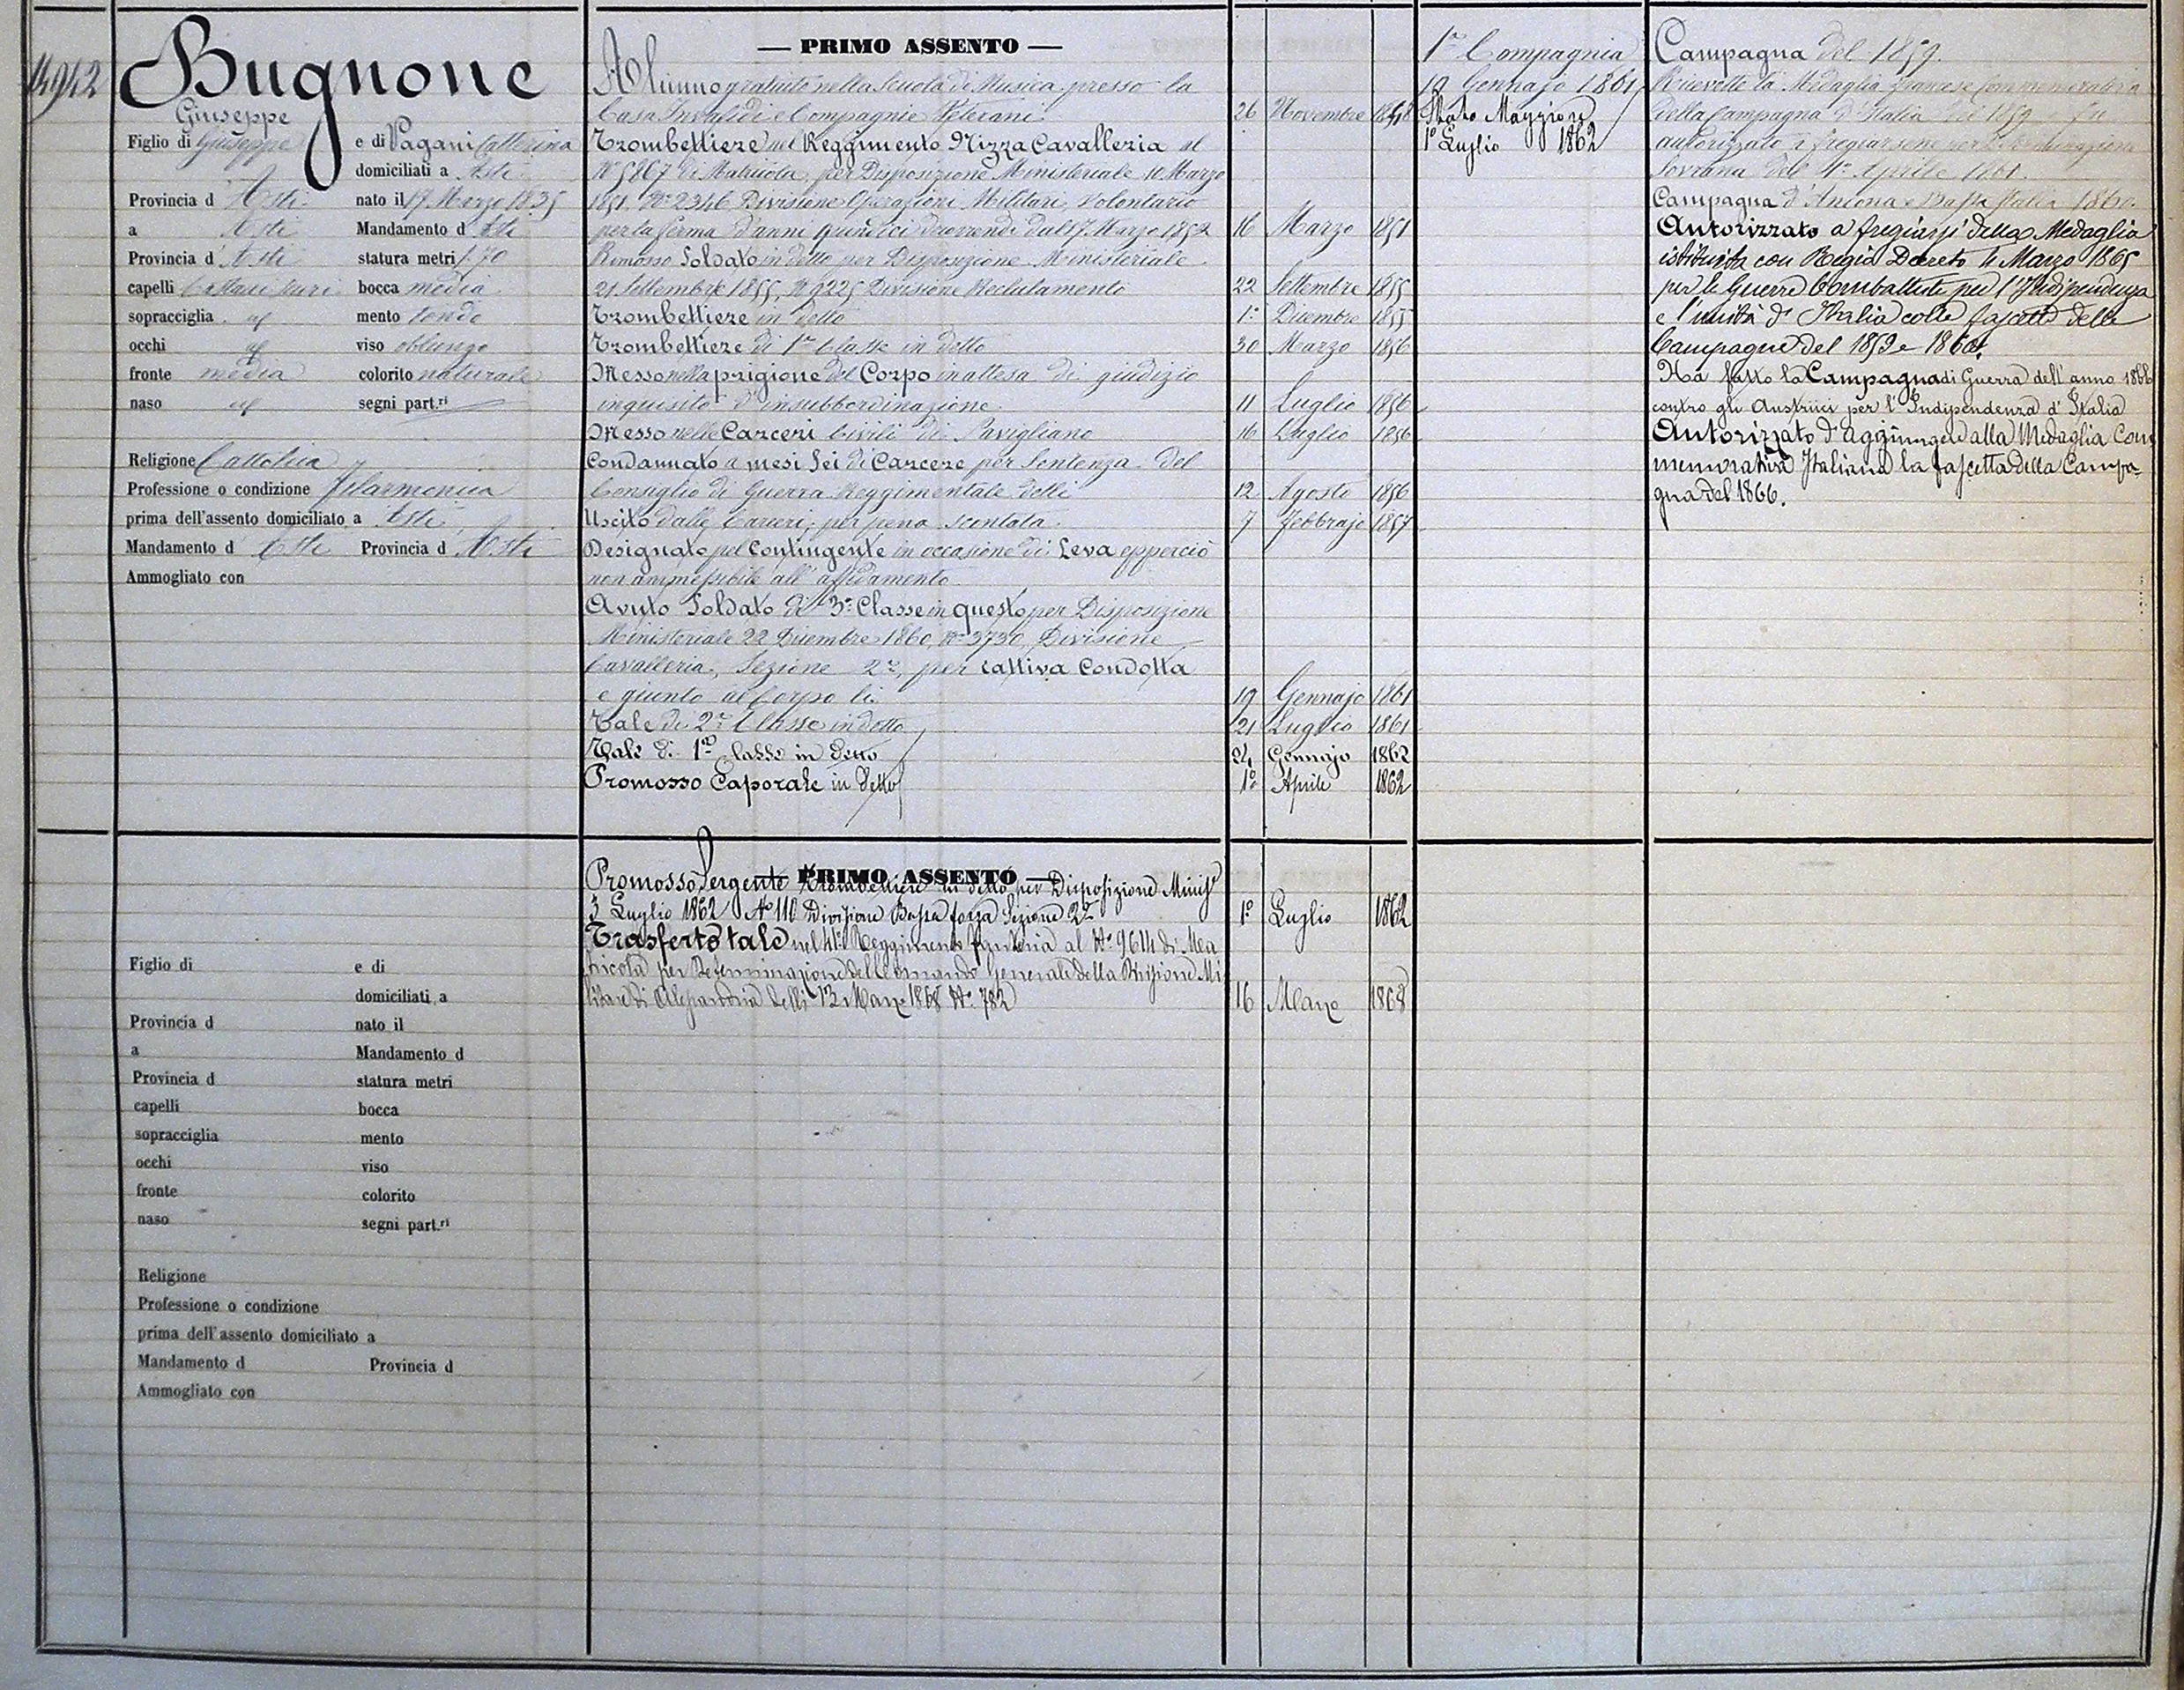 14942
Bugnone
Giuseppe
Figlio di Giuseppe e di Pagani Catterina
domiciliati a Asti
Provincia d Asti nato il 17 Marzo 1835
a Asti Mandamento d Asti
Provincia d Asti statura metri 1.70
capelli Castani scuri bocca media
sopracciglia id mento tondo
occhi id viso oblungo
fronte media colorito naturale
naso id segni part.ri
Religione Cattolica
Professione o condizione Filarmonica
prima dell'assento domiciliato a Asti
Mandamento d Asti Provincia d Asti
Ammogliato con
— PRIMO ASSENTO —
Alunno gratuito nella Scuola di Musica presso la
Casa Invalidi e Compagnie Veterani. 26 Novembre 1848
Trombettiere nel Reggimento Nizza Cavalleria al
N° 5867 di Matricola, per Disposizione Ministeriale 10 Marzo
1851, N° 2346 Divisione Operazioni Militari, Volontario
per la ferma d'anni quindici decorrendi dal 17 Marzo 1852 16 Marzo 1851
Rimosso Soldato in detto per Disposizione Ministeriale
21 Settembre 1855, N° 9225 Divisione Reclutamento 22 Settembre 1855
Trombettiere in detto 1° Dicembre 1855
Trombettiere di 1a Classe in detto 30 Marzo 1856
Messo nella prigione del Corpo in attesa di giudizio
inquisito d'insubbordinazione 11 Luglio 1856
Messo nelle Carceri Civili di Savigliano 16 Luglio 1856
Condannato a mesi Sei di Carcere per Sentenza del
Consiglio di Guerra Reggimentale delli 12 Agosto 1856
Uscito dalle Carceri, per pena scontata 7 Febbrajo 1857
Designato pel Contingente in occasione di Leva epperciò
non ammessibile all'affidamento
Avuto Soldato di 3a Classe in questo per Disposizione
Ministeriale 22 Dicembre 1860, N° 3730, Divisione
Cavalleria, Sezione 2a, per cattiva Condotta
e giunto al Corpo li 19 Gennajo 1861
Tale di 2a Classe in detto 21 Luglio 1861
Tale di 1a Classe in detto 24 Gennajo 1862
Promosso Caporale in detto 1° Aprile 1862
1a Compagnia
19 Gennajo 1861
Stato Maggiore
1° Luglio 1862
Campagna del 1859.
Ricevette la Medaglia francese Commemorativa
della Campagna d'Italia del 1859 fu
autorizzato a fregiarsene per Determinazione
Sovrana del 4 Aprile 1861.
Campagna d'Ancona e Bassa Italia 1860.
Autorizzato a fregiarsi della Medaglia
istituita con Regio Decreto 4 Marzo 1865
per le Guerre Combattute per l'Indipendenza
e l'unità d'Italia colle fascette delle
Campagne del 1859 e 1860.
Ha fatto la Campagna di Guerra dell'anno 1866
contro gli Austriaci per l'Indipendenza d'Italia
Autorizzato d'aggiungere alla Medaglia Com
memorativa Italiana la fascetta della Campa-
gna del 1866.
— PRIMO ASSENTO —
Promosso Sergente Trombettiere in detto per Disposizione Minist
3 Luglio 1862 N° 110 Divisione Bassa forza Sezione 2a 1° Luglio 1862
Trasferto tale nel 41° Reggimento Fanteria al N° 9614 di Ma
tricola per Determinazione del Comando Generale della Divisione Mi
litare di Alessandria delli 12 Marzo 1868 N° 782 16 Marzo 1868
Figlio di e di
domiciliati a
Provincia d nato il
a Mandamento d
Provincia d statura metri
capelli bocca
sopracciglia mento
occhi viso
fronte colorito
naso segni part.ri
Religione
Professione o condizione
prima dell'assento domiciliato a
Mandamento d Provincia d
Ammogliato con